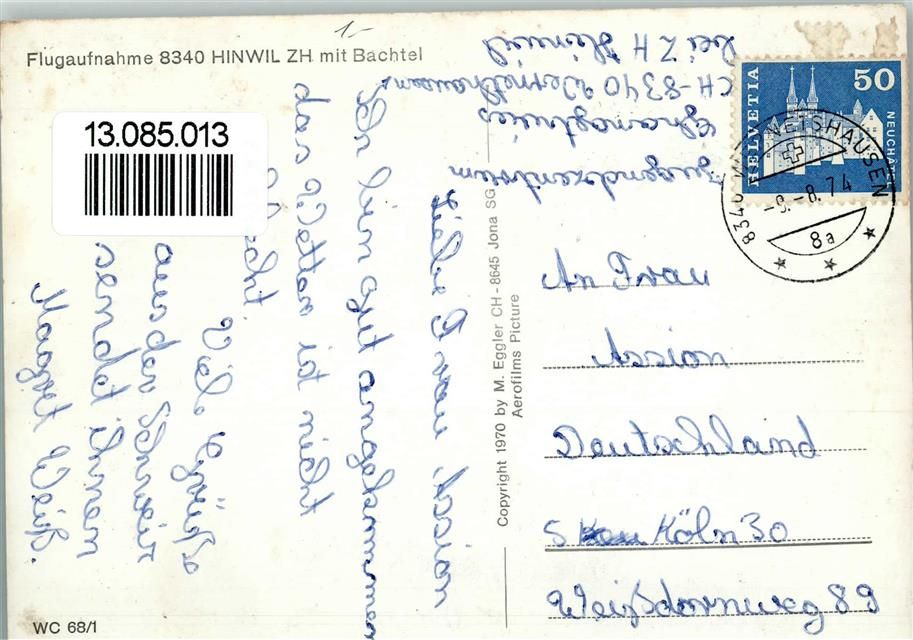 Flugaufnahme 8340 HINWIL ZH mit Bachtel
1.-
13.085.013
HELVETIA
50
NEUCHÂ
8340 WERNETSHAUSEN
-9.-8.74
8a
Jugendzentrum
CH-8340 Wernetshausen
bei ZH Hinwil
Liebe Frau Assion
bin gut angekommen
das Wetter ist nicht
Viele Grüße
aus der Schweiz
sendet Ihnen
Margret Weiß.
Copyright 1970 by M. Eggler CH - 8645 Jona SG
Aerofilms Picture
An Frau
Assion
Deutschland
5 Köln 30
Weißdornweg 89
WC 68/1